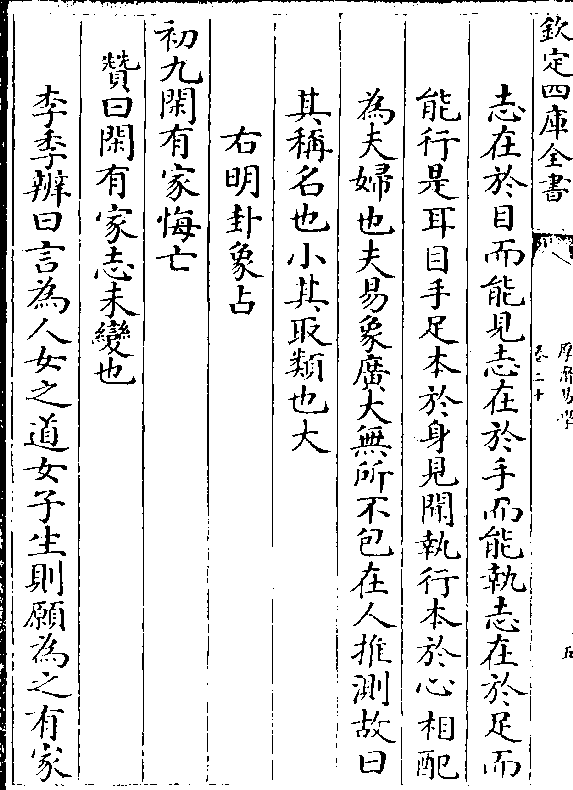 欽定四庫全書
厚齋易學
卷二十
五
志在於目而能見志在於手而能執志在於足而
能行是耳目手足本於身見聞執行本於心相配
為夫婦也夫易象廣大無所不包在人推測故曰
其稱名也小其取類也大
右明卦象占
初九閑有家悔亡
贊曰閑有家志未變也
李季辦曰言為人女之道女子生則願為之有家